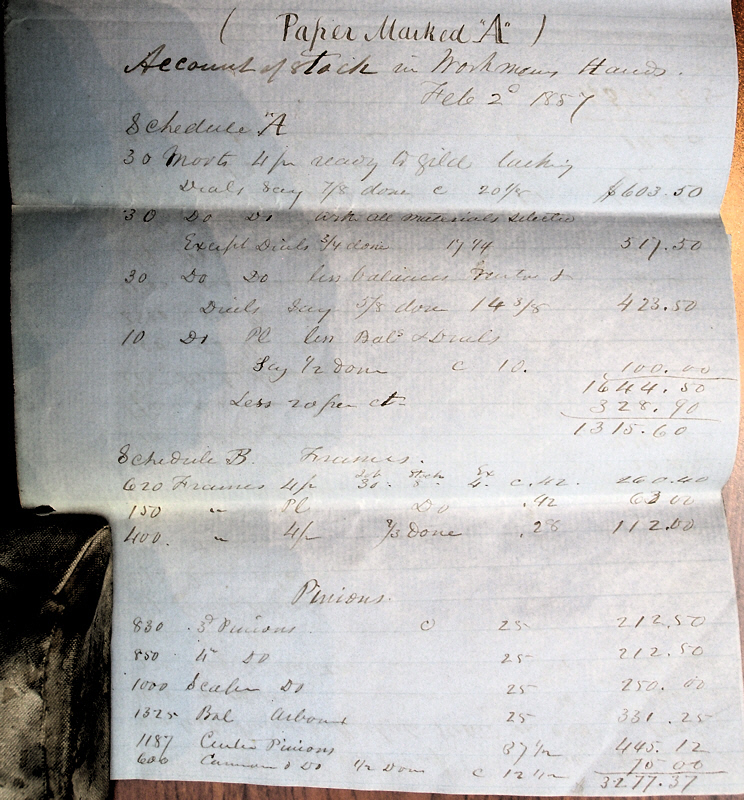 ( Paper Marked "A" )
Account of Stock in Workmens Hands.
Feb 2d 1857
Schedule "A
30 Movts 4/pr ready to gild lacking
Dials Say 7/8 done c 20 1/8 $603.50
30 Do Do with all materials selected
Except Dials 3/4 done 17 1/4 517.50
30 Do Do less balances &
Dials Say 5/8 done 14 3/8 423.50
10 Do Pl less Bals & Dials
Say 1/2 done c 10. 100.00
1644.50
Less 20 per ct 328.90
1315.60
Schedule B. Frames.
620 Frames 4/pr 30. Stock 8 Ex 4. c .42. 260.40
150 " Pl Do .42 63 00
400. " 4/pr 2/3 Done .28 112.00
Pinions.
850 3d Pinions. c 25 212.50
850 4 Do 25 212.50
1000 Scape Do 25 250.00
1325 Bal Arbours 25 331.25
1187 Center Pinions 37 1/2 445.12
600 Cannon d Do 1/2 Done c 12 1/2 75 00
3277.37